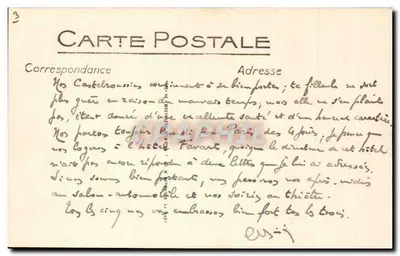 3
CARTE POSTALE
Correspondance
Adresse
Nos Castelroussins continuent à se bien porter ; ta fillule ne sort
plus guère en raison du mauvais temps, mais elle ne s'en plaint
pas, étant douée d'une excellente santé et d'un heureux caractère.
Nos partons toujours pour Paris, je pense que
nos logerons à l'hôtel Favart, quoique le directeur de cet hôtel
n'ait pas encore répondu à deux lettres que je lui ai adressées.
Si nos sommes bien portants, nos passerons nos après-midis
au salon-automobile et nos soirées au théâtre.
Tos les cinq nos vos embrassons bien fort tos les trois.